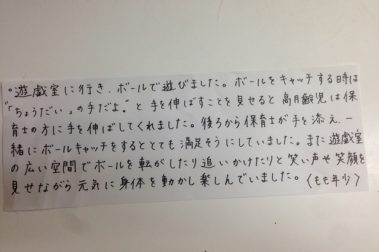 °遊戯室に行き、ボールで遊びました。ボールをキャッチする時は
"ちょうだい"の手だよ。"と手を伸ばすことを見せると高月齢児は保
育士の方に手を伸ばしてくれました。後ろから保育士が手を添え、一
緒にボールキャッチをするととても満足そうにしていました。また遊戯室
の広い空間でボールを転がしたり追いかけたりと笑い声や笑顔を
見せながら元気に身体を動かし楽しんでいました。(もも年少)